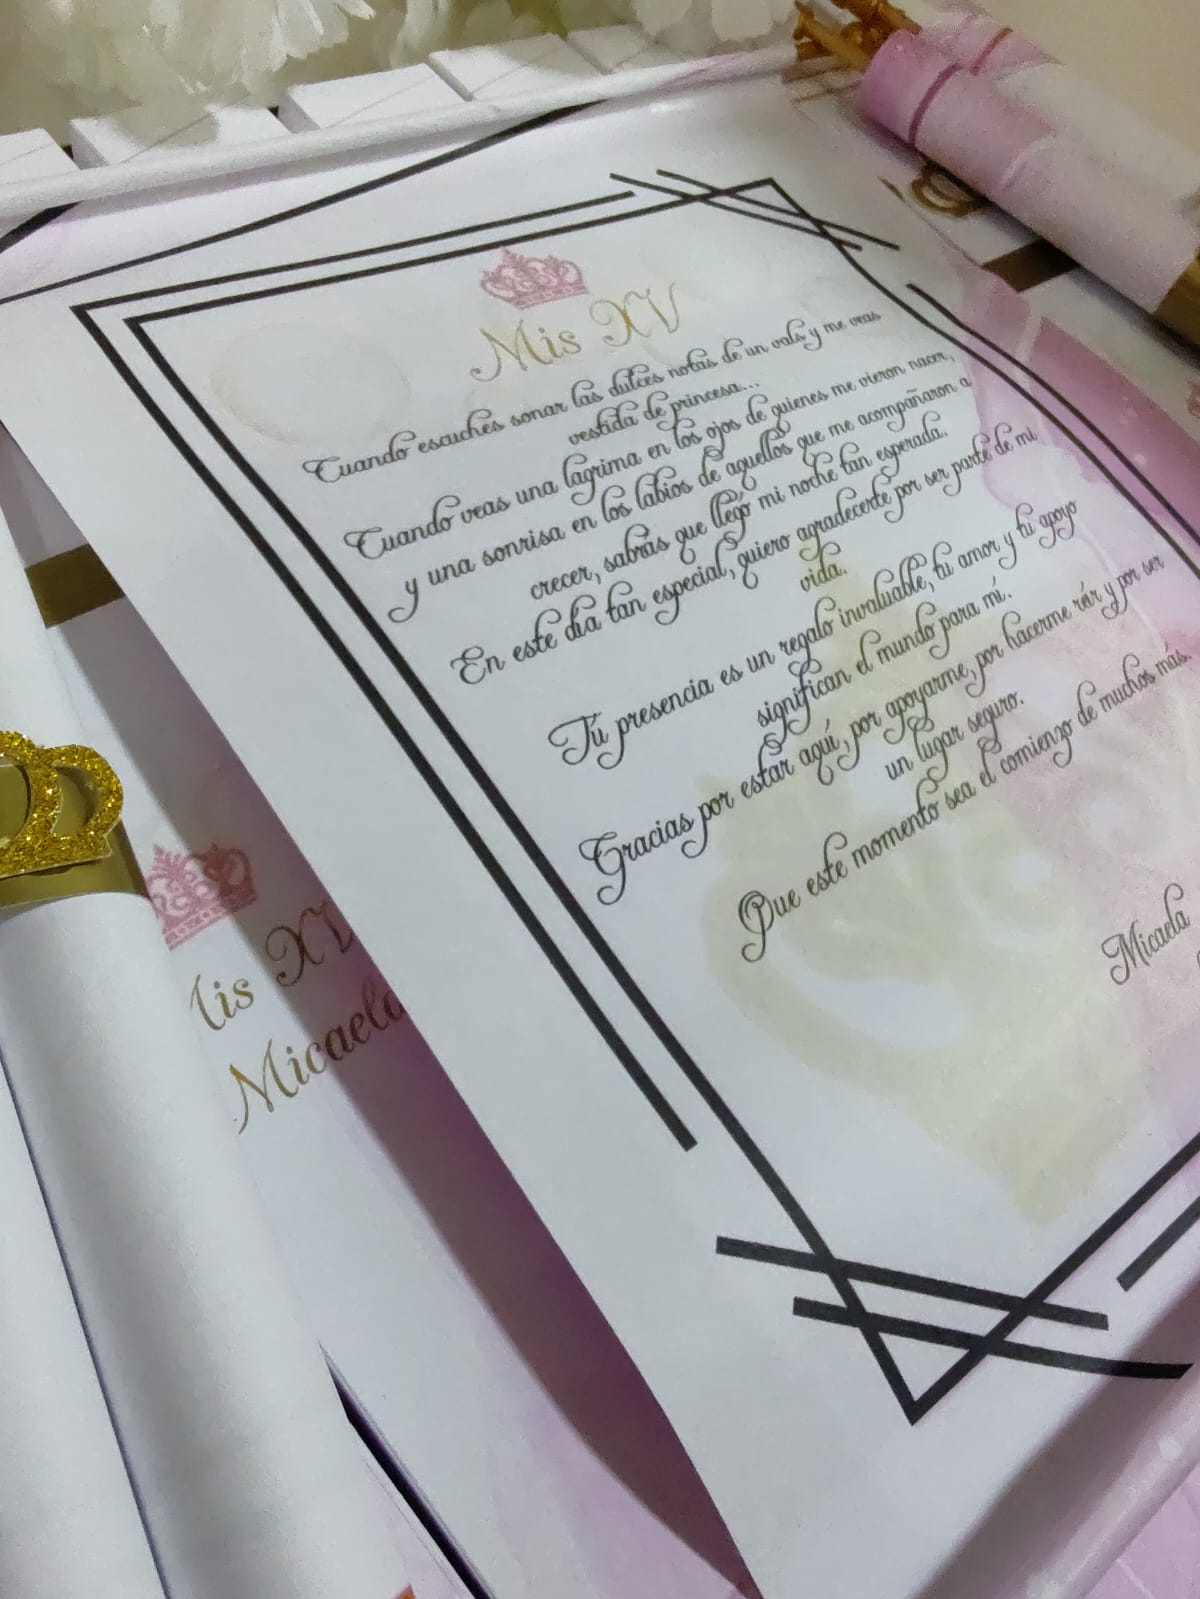 Mis XV
Cuando escuches sonar las dulces notas de un vals y me veas
vestida de princesa...
Cuando veas una lagrima en los ojos de quienes me vieron nacer,
y una sonrisa en los labios de aquellos que me acompañaron a
crecer, sabrás que llegó mi noche tan esperada.
En este día tan especial, quiero agradecerte por ser parte de mi
vida.
Tú presencia es un regalo invaluable, tu amor y tu apoyo
significan el mundo para mí.
Gracias por estar aquí, por apoyarme, por hacerme reír y por ser
un lugar seguro.
Que este momento sea el comienzo de muchos más.
Micaela
Mis XV
Micaela